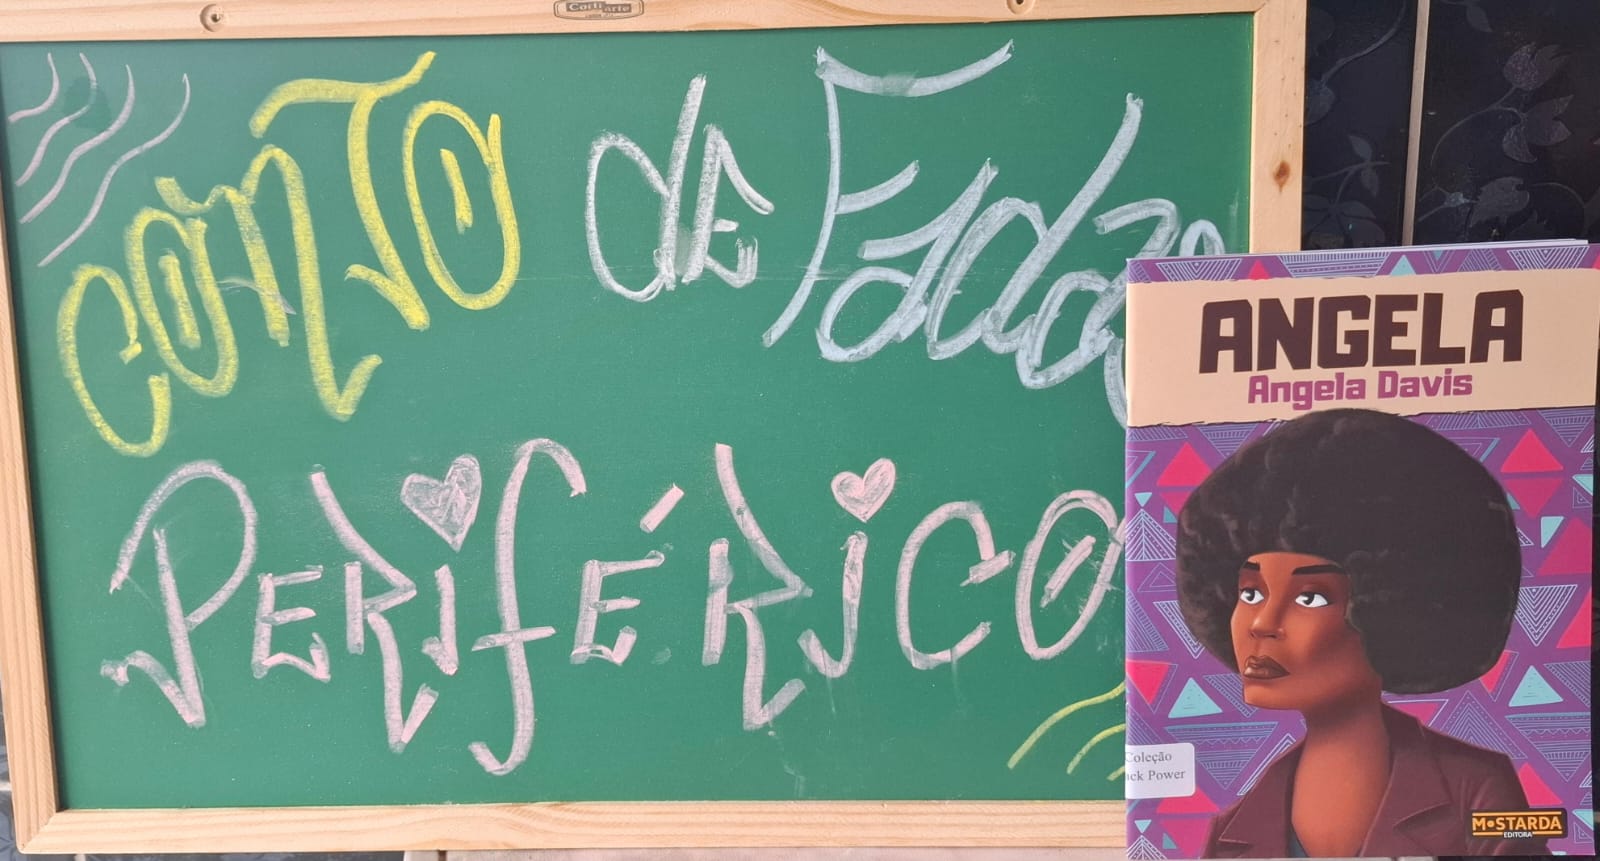 CONTO de Fadas
PERIFÉRICO
ANGELA
Angela Davis
Coleção
ack Power
MOSTARDA
EDITORA
Corti arte